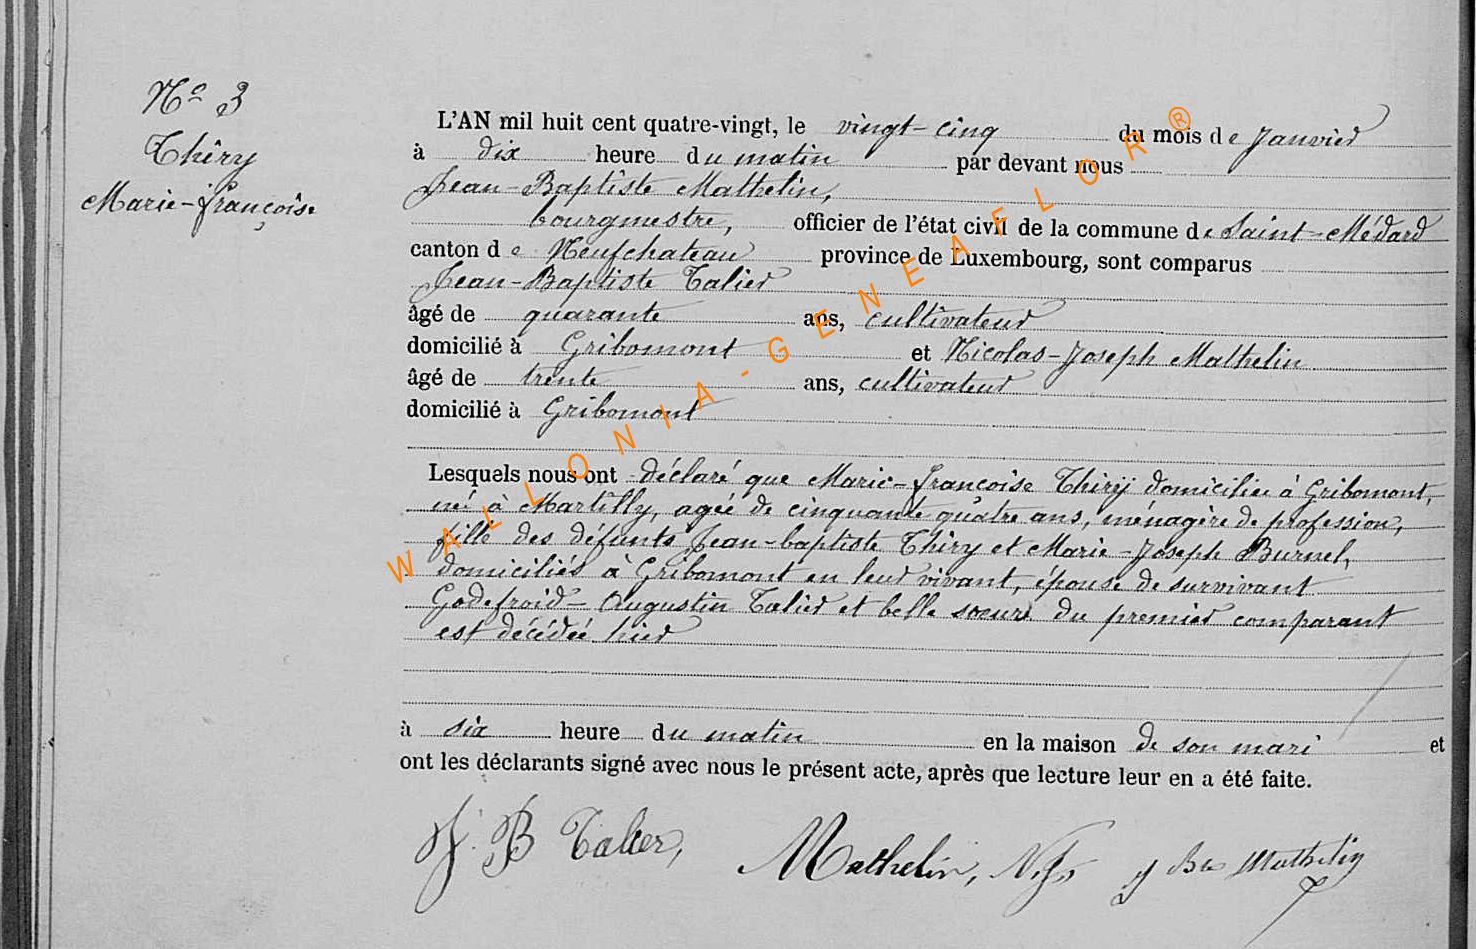 Nº 3
Thiry
Marie-françoise
L'AN mil huit cent quatre-vingt, le vingt-cinq du mois de Janvier
à dix heure du matin par devant nous
Jean-Baptiste Mathelin,
bourgmestre, officier de l'état civil de la commune de Saint-Médard
canton de Neufchateau province de Luxembourg, sont comparus
Jean-Baptiste Talier
âgé de quarante ans, cultivateur
domicilié à Gribomont et Nicolas-Joseph Mathelin
âgé de trente ans, cultivateur
domicilié à Gribomont
Lesquels nous ont déclaré que Marie-françoise Thiry domiciliée à Gribomont,
né à Martilly, agée de cinquante quatre ans, ménagère de profession,
fille des défunts Jean-baptiste Thiry et Marie-Joseph Burnel,
domiciliés à Gribomont en leur vivant, épouse de survivant
Godefroid-Augustin Talier et belle soeure du premier comparant
est décédée hier
à six heure du matin en la maison de son mari et
ont les déclarants signé avec nous le présent acte, après que lecture leur en a été faite.
J. B Talier, Mathelin, N. J. J Bte Mathelin
WALLONIA-GENEAFLOR®